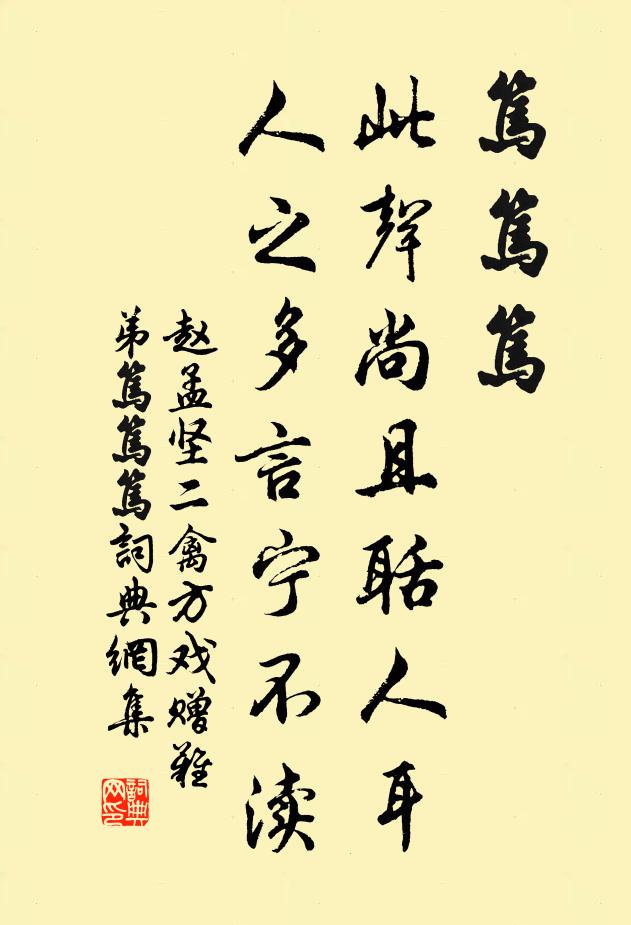 篤篤篤
此聲尚且聒人耳
人之多言宁不渎
赵孟坚二禽方戏赠难
弟篤篤篤詞典網集
詞典
网印